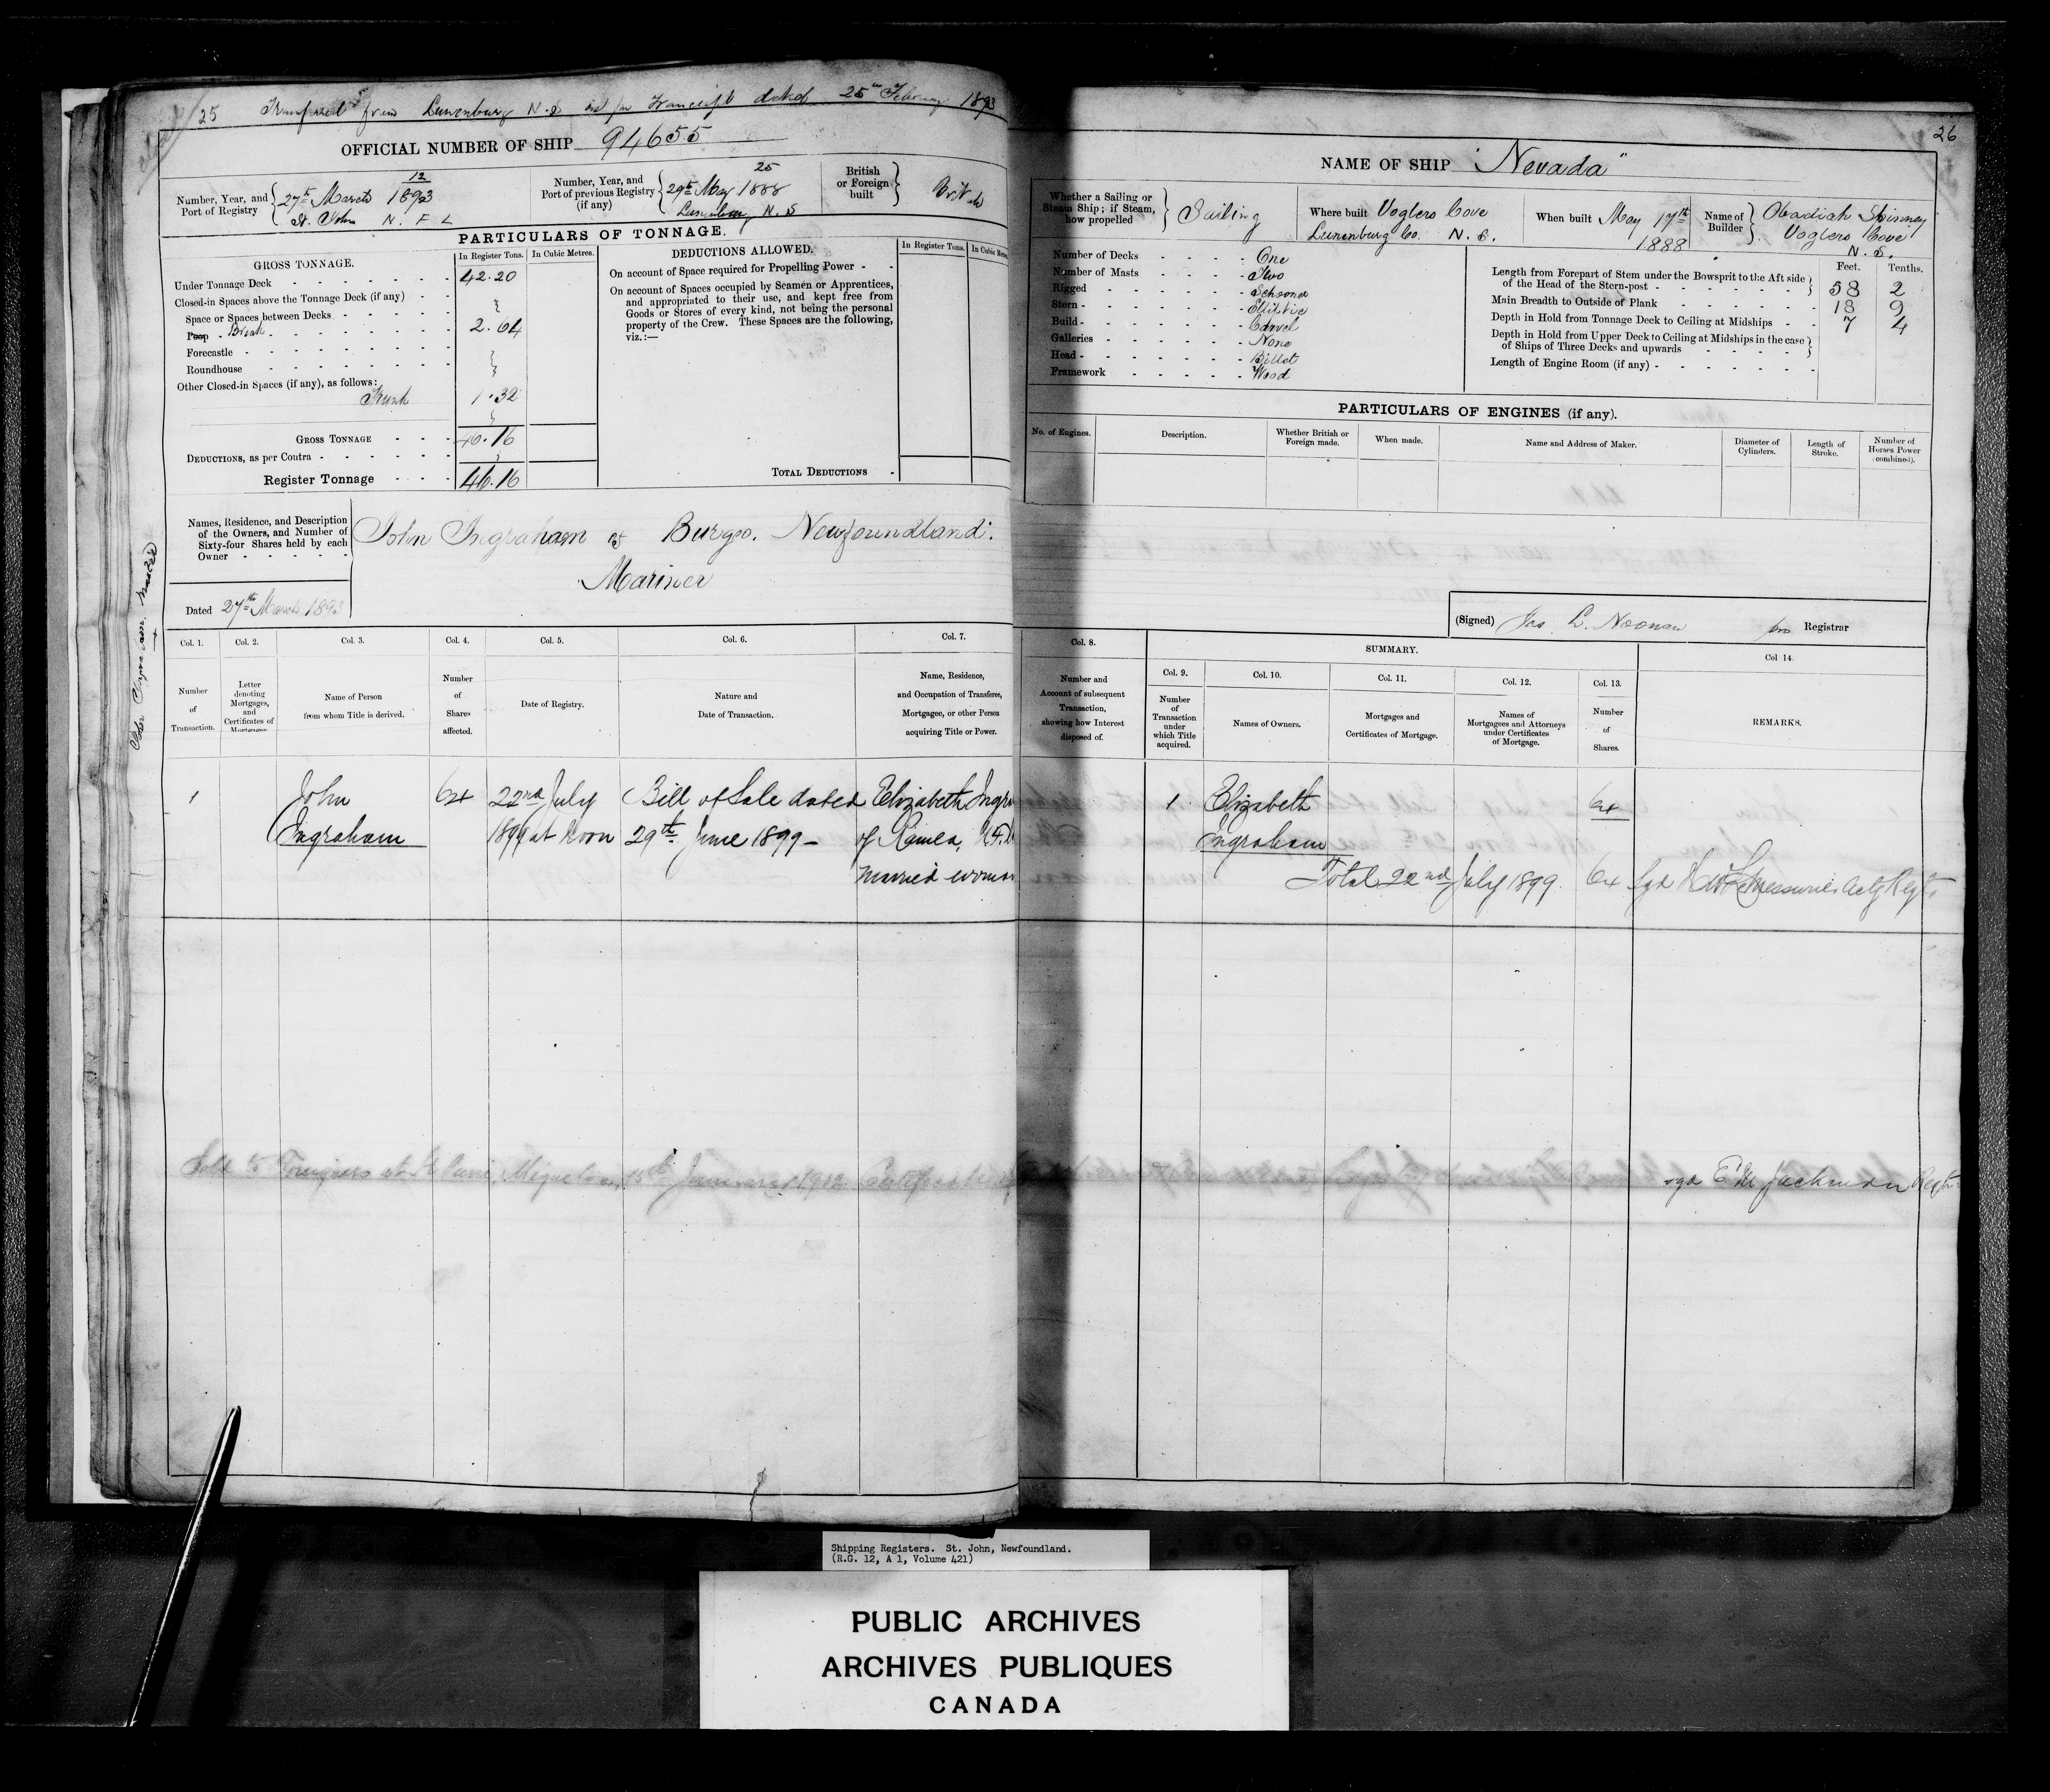 25 Transferred from Lunenburg N.S as per transcript dated 25th February 1893
OFFICIAL NUMBER OF SHIP 94655
Number, Year, and Port of Registry 12 27th March 1893 St. John N. F. L
Number, Year, and Port of previous Registry (if any) 25 29th May 1888 Lunenburg N. S
British or Foreign built British
PARTICULARS OF TONNAGE.
GROSS TONNAGE. In Register Tons. In Cubic Metres.
Under Tonnage Deck 42.20
Closed-in Spaces above the Tonnage Deck (if any)
Space or Spaces between Decks
Poop Break 2.64
Forecastle
Roundhouse
Other Closed-in Spaces (if any), as follows:
Trunk 1.32
GROSS TONNAGE 46.16
DEDUCTIONS, as per Contra
Register Tonnage 46.16
DEDUCTIONS ALLOWED. In Register Tons. In Cubic Metres
On account of Space required for Propelling Power
On account of Spaces occupied by Seamen or Apprentices,
and appropriated to their use, and kept free from
Goods or Stores of every kind, not being the personal
property of the Crew. These Spaces are the following,
viz.:—
TOTAL DEDUCTIONS
Names, Residence, and Description
of the Owners, and Number of
Sixty-four Shares held by each
Owner
John Ingraham of Burgeo. Newfoundland.
Mariner
Dated 27th March 1893
Col. 1. Col. 2. Col. 3. Col. 4. Col. 5. Col. 6. Col. 7.
Number of Transaction.
Letter denoting Mortgages, and Certificates of Mortgages
Name of Person from whom Title is derived.
Number of Shares affected.
Date of Registry.
Nature and Date of Transaction.
Name, Residence, and Occupation of Transferee, Mortgagee, or other Person acquiring Title or Power.
1 John 64 22nd July Bill of Sale dated Elizabeth Ingra
Ingraham 1899 at Noon 29th June 1899 of Ramea, N.F.
Married woman
Sold to Foreigners at St Pierre, Miquelon, 15th January 1912 Certificate
26
NAME OF SHIP "Nevada"
Whether a Sailing or Steam Ship; if Steam, how propelled Sailing
Where built Voglers Cove Lunenburg Co. N. S.
When built May 17th 1888
Name of Builder Obadiah Spinney Voglers Cove N. S.
Number of Decks One
Number of Masts Two
Rigged Schooner
Stern Elliptic
Build Carvel
Galleries None
Head Billet
Framework Wood
Feet. Tenths.
Length from Forepart of Stem under the Bowsprit to the Aft side
of the Head of the Stern-post 58 2
Main Breadth to Outside of Plank 18 9
Depth in Hold from Tonnage Deck to Ceiling at Midships 7 4
Depth in Hold from Upper Deck to Ceiling at Midships in the case
of Ships of Three Decks and upwards
Length of Engine Room (if any)
PARTICULARS OF ENGINES (if any).
No. of Engines. Description. Whether British or Foreign made. When made. Name and Address of Maker. Diameter of Cylinders. Length of Stroke. Number of Horses Power (combined).
(Signed) Jas L. Noonan pro Registrar
Col. 8. SUMMARY. Col 14.
Col. 9. Col. 10. Col. 11. Col. 12. Col. 13.
Number and Account of subsequent Transaction, showing how Interest disposed of.
Number of Transaction under which Title acquired.
Names of Owners.
Mortgages and Certificates of Mortgage.
Names of Mortgagees and Attorneys under Certificates of Mortgage.
Number of Shares.
REMARKS.
1 Elizabeth 64
Ingraham
Total 22nd July 1899. 64 Sgd H W LeMessurier Actg Regr.
Registry
sgd E M Jackman Regtr
Shipping Registers. St. John, Newfoundland.
(R.G. 12, A 1, Volume 421)
PUBLIC ARCHIVES
ARCHIVES PUBLIQUES
CANADA